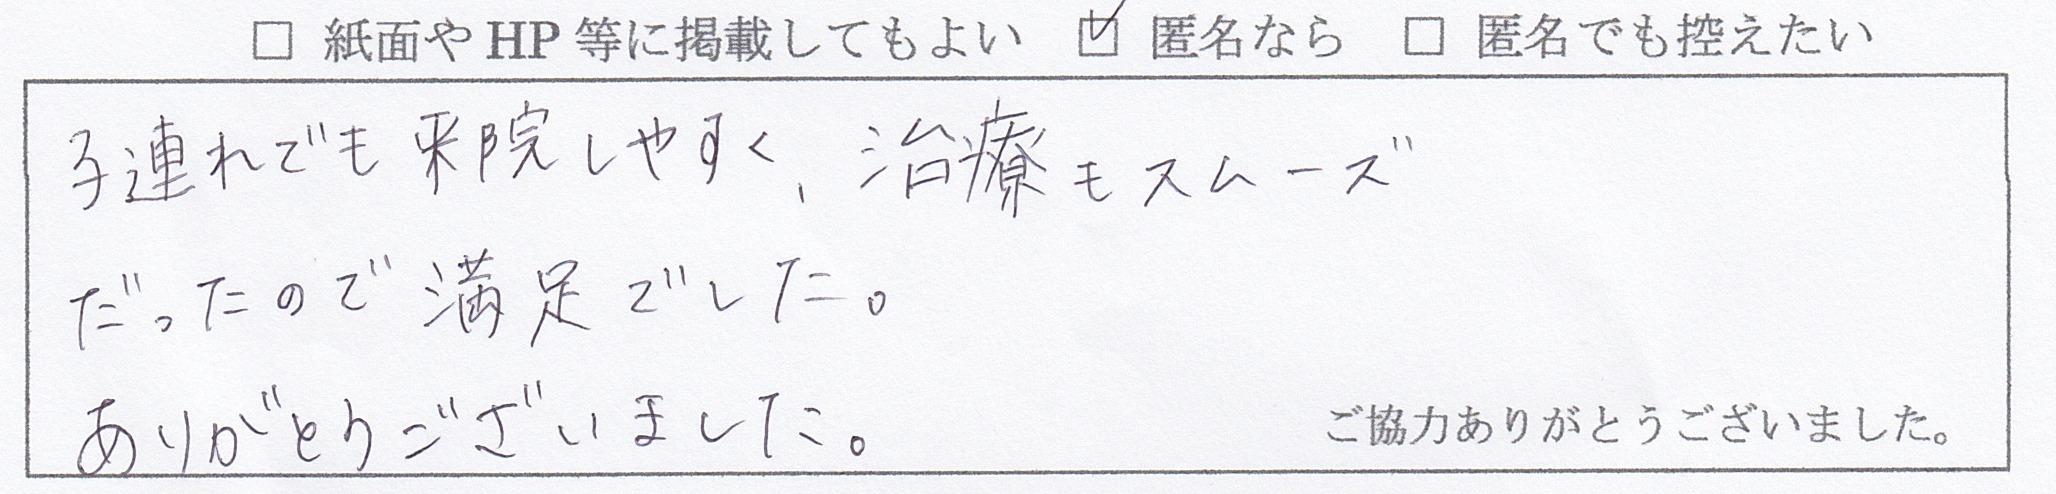 □ 紙面や HP 等に掲載してもよい ☑ 匿名なら □ 匿名でも控えたい
子連れでも来院しやすく、治療もスムーズ
だったので満足でした。
ありがとうございました。
ご協力ありがとうございました。